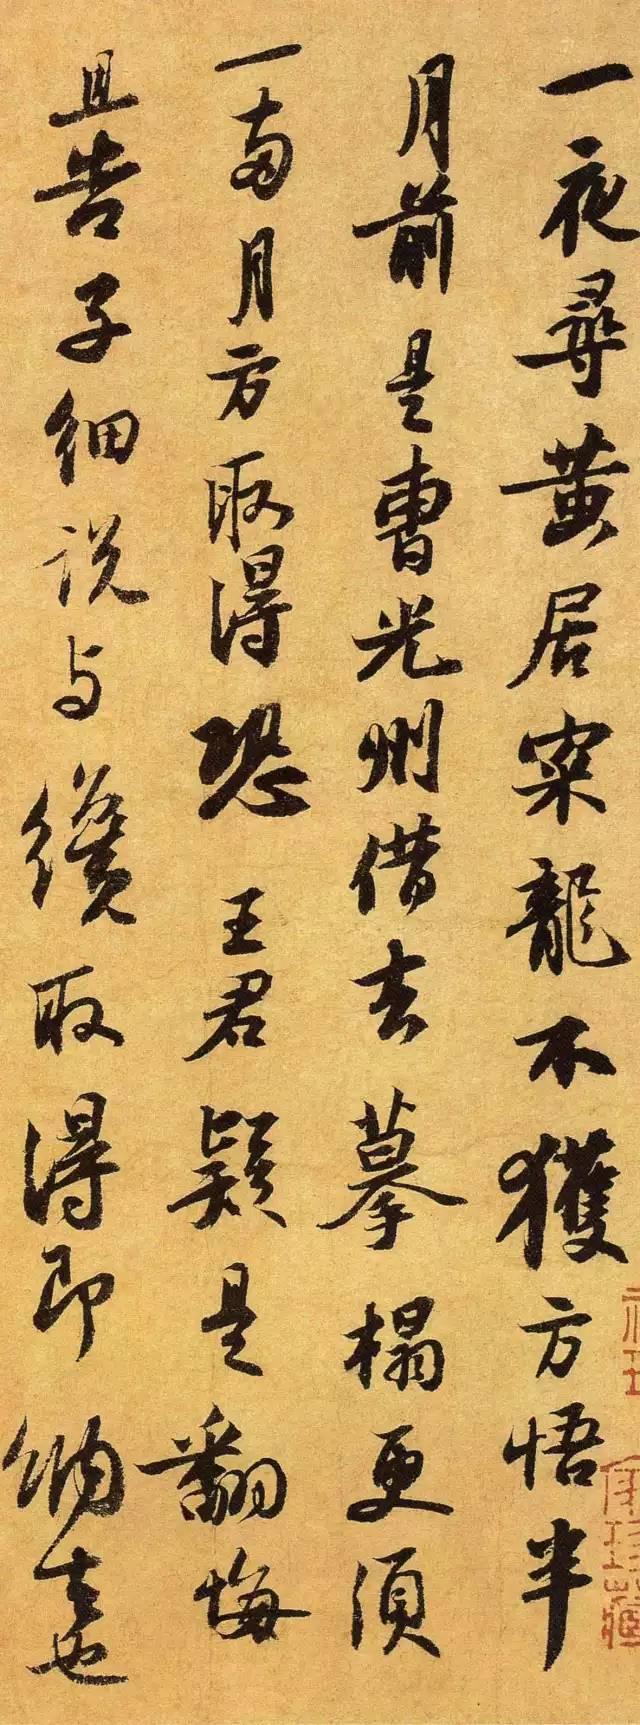 一夜尋黄居寀龍不獲方悟半
月前是曹光州借去摹榻更須
一兩月方取得恐王君疑是翻悔
且告子細説与纔取得即納去也